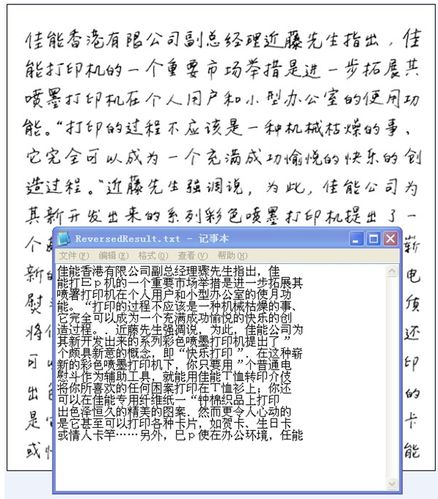 佳能香港有限公司副总经理近藤先生指出,佳
能打印机的一个重要市场举措是进一步拓展其
喷墨打印机在个人用户和小型办公室的使用功
能。“打印的过程不应该是一种机械枯燥的事、
它完全可以成为一个充满成功愉悦的快乐的创
造过程。”近藤先生强调说,为此,佳能公司为
其新开发出来的系列彩色喷墨打印机提出了一
个 崭
新 电
熨
将 还
可 印
出 的
是 卡
或 能
ReversedResult.txt - 记事本
文件(F) 编辑(E) 格式(O) 查看(V) 帮助(H)
佳能香港有限公司副总经理骤先生指出,佳
能打巳p机的一个重要市场举措是进一步拓展其
喷署打印机在个人用户和小型办公室的使月功
能。“打印的过程不应该是一种机械枯燥的事、
它完全可以成为一个充满成功愉悦的快乐的创
造过程。.近藤先生强凋说,为此,佳能公司为
其新开发出来的系列彩色喷墨打印机提出了”
个颇具新意的概念,即“快乐打印”.在这种崭
新的彩色喷墨打印机下,你只要用”个普通电
熨斗作为辅助工具,就能用佳能丁恤转印介伎
将你所喜欢的任何图案打印在丁恤衫上;你还
可以在佳能专用纤维纸一“钟棉织品上打印
出色泽恒久的精美的图案.然而更令人心动的
是它甚至可以打印各种卡片,如贺卡、生日卡
或情人卡竿……另外,巳p使在办公环境,任能